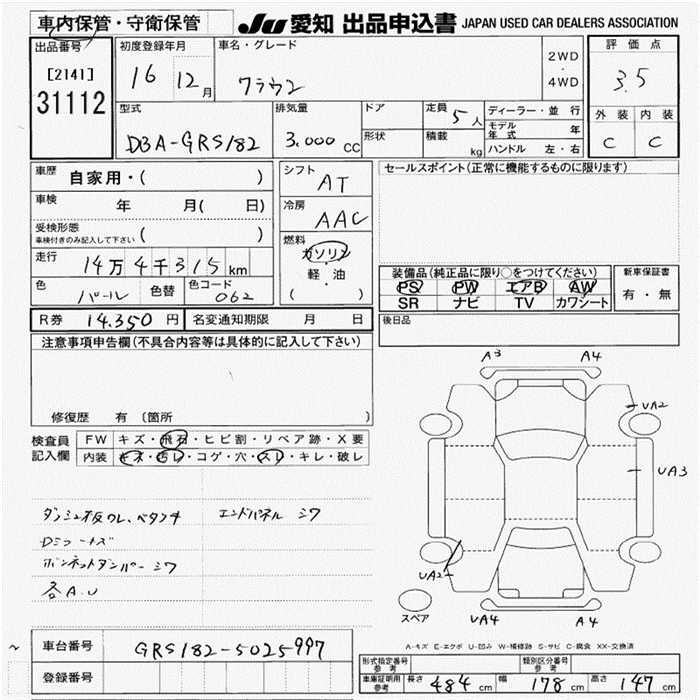 車内保管・守衛保管
JU 愛知 出品申込書 JAPAN USED CAR DEALERS ASSOCIATION
出品番号
[2141]
31112
初度登録年月
16 12月
車名・グレード
クラウン
2WD
・
4WD
評価点
3.5
外装 内装
C C
型式
DBA-GRS182
排気量
3.000 CC
ドア
形状
定員 5人
積載 kg
ディーラー・並行
モデル年式 年
ハンドル 左・右
車歴 自家用・( )
車検 年 月( 日)
受検形態
車検付きのみ記入して下さい ( )
走行 14万4千315km
色 パール 色替 色コード 062
シフト AT
冷房 AAC
燃料
ガソリン
・
軽・油
( )
セールスポイント(正常に機能するものに限ります)
装備品(純正品に限り○をつけてください)
PS PW エアB AW
SR ナビ TV カワシート
新車保証書
有・無
R券 14.350円 名変通知期限 月 日
後日品
注意事項申告欄(不具合内容等は具体的に記入して下さい)
修復歴 有 〔箇所
検査員記入欄
FW キズ・飛石・ヒビ割・リペア跡・X要
内装 キズ・汚レ・コゲ・穴・スリ・キレ・破レ
ダッシュ板ワレ、ベタツキ エンドパネル シワ
ボンネットダンパー シワ
各A.U
A3 A4
UA2
UA3
UA2
UA4 A4
スペア
A-キズ E-エクボ U-凹み W-補修跡 S-サビ C-腐食 XX-交換済
車台番号 GRS182-5025997
登録番号
型式指定番号 参考
類別区分番号 参考
車庫証明用 参考 長さ 484cm 幅 178cm 高さ 147cm